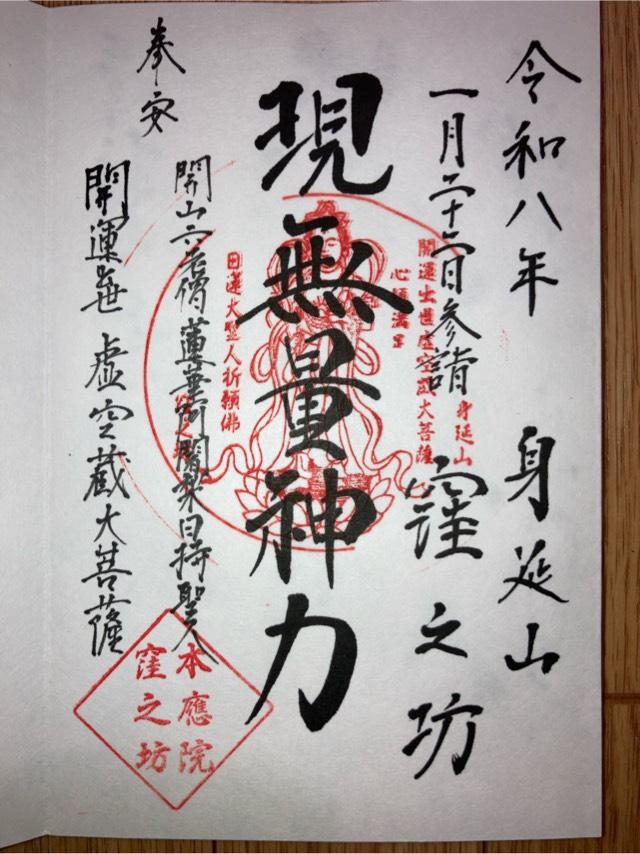 令和八年 身延山
一月二十二日参詣 窪之坊
現無量神力
奉安
開山六老僧蓮華阿闍梨日持聖人
開運出世虚空蔵大菩薩
開運出世虚空蔵大菩薩 身延山
心願満足
日蓮大聖人祈願佛
本應院
窪之坊